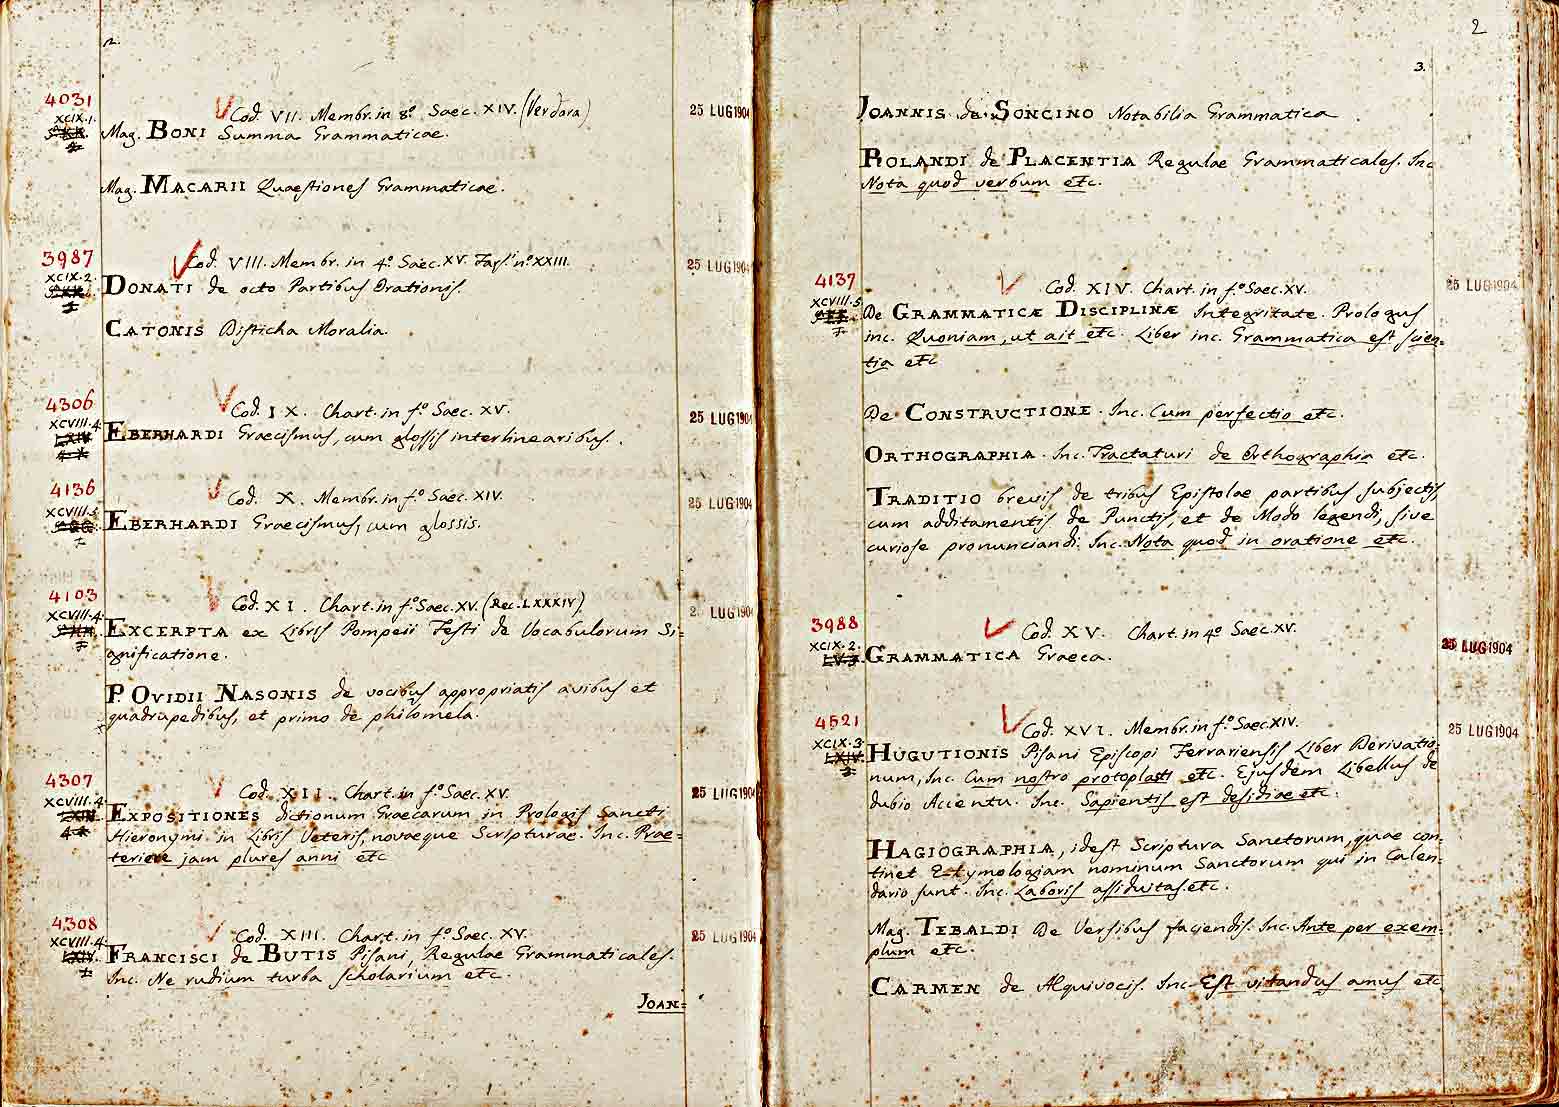 2.
4031
Cod. VII. Membr. in 8º Saec. XIV. (Verdora)
25 LUG 1904
XCIX.1.
Mag. BONI Summa Grammaticae.
Mag. MACARII Quaestiones Grammaticae.
3987
Cod. VIII. Membr. in 4º Saec. XV. nº XXIII.
25 LUG 1904
XCIX.2.
DONATI de octo Partibus Orationis.
CATONIS Disticha Moralia.
4306
Cod. IX. Chart. in fº Saec. XV.
25 LUG 1904
XCVIII.4.
LXIV
EBERHARDI Graecismus, cum glossis interlinearibus.
4136
Cod. X. Membr. in fº Saec. XIV.
25 LUG 1904
XCVIII.5.
EBERHARDI Graecismus, cum glossis.
4103
Cod. XI. Chart. in fº Saec. XV. (Rec. LXXXIV)
2 LUG 1904
XCVIII.4.
EXCERPTA ex Libris Pompeii Festi de Vocabulorum Si=
gnificatione.
P. OVIDII NASONIS de vocibus appropriatis avibus et
quadrupedibus, et primo de philomela.
4307
Cod. XII. Chart. in fº Saec. XV.
25 LUG 1904
XCVIII.4.
LXIV
EXPOSITIONES dictionum Graecarum in Prologis Sancti
Hieronymi in Libris Veteris, novaeque Scripturae. Inc. Prae=
teriere jam plures anni etc
4308
Cod. XIII. Chart. in fº Saec. XV.
25 LUG 1904
XCVIII.4.
LXIV.
FRANCISCI de BUTIS Pisani, Regulae Grammaticales.
Inc. Ne rudium turba scholarium etc.
JOAN=
2
3.
JOANNIS de SONCINO Notabilia Grammatica.
ROLANDI de PLACENTIA Regulae Grammaticales. Inc
Nota quod verbum etc.
4137
Cod. XIV. Chart. in fº Saec. XV.
25 LUG 1904
XCVIII.5.
De GRAMMATICÆ DISCIPLINÆ Integritate. Prologus
inc. Quoniam, ut ait etc. Liber inc. Grammatica est scien=
tia etc
De CONSTRUCTIONE. Inc. Cum perfectio etc.
ORTHOGRAPHIA. Inc. Tractaturi de Orthographia etc.
TRADITIO brevis de tribus Epistolae partibus subjectis,
cum additamentis de Punctis, et de Modo legendi, sive
curiose pronunciandi. Inc. Nota quod in oratione etc.
3988
Cod. XV. Chart. in 4º Saec. XV.
25 LUG 1904
XCIX.2.
GRAMMATICA Graeca.
4521
Cod. XVI. Membr. in fº Saec. XIV.
25 LUG 1904
XCIX.3.
LXIV.
HUGUTIONIS Pisani Episcopi Ferrariensis Liber Derivatio=
num, Inc. Cum nostro protoplasti etc. Ejusdem Libellus de
dubio Accentu. Inc. Sapientis est desidiae etc.
HAGIOGRAPHIA, idest Scriptura Sanctorum, quae con=
tinet Etymologiam nominum Sanctorum qui in Calen=
dario sunt. Inc. Laboris assiduitas etc.
Mag. TEBALDI De Versibus faciendis. Inc. Ante per exem=
plum etc.
CARMEN de Aequivocis. Inc. Est vitandus amus etc